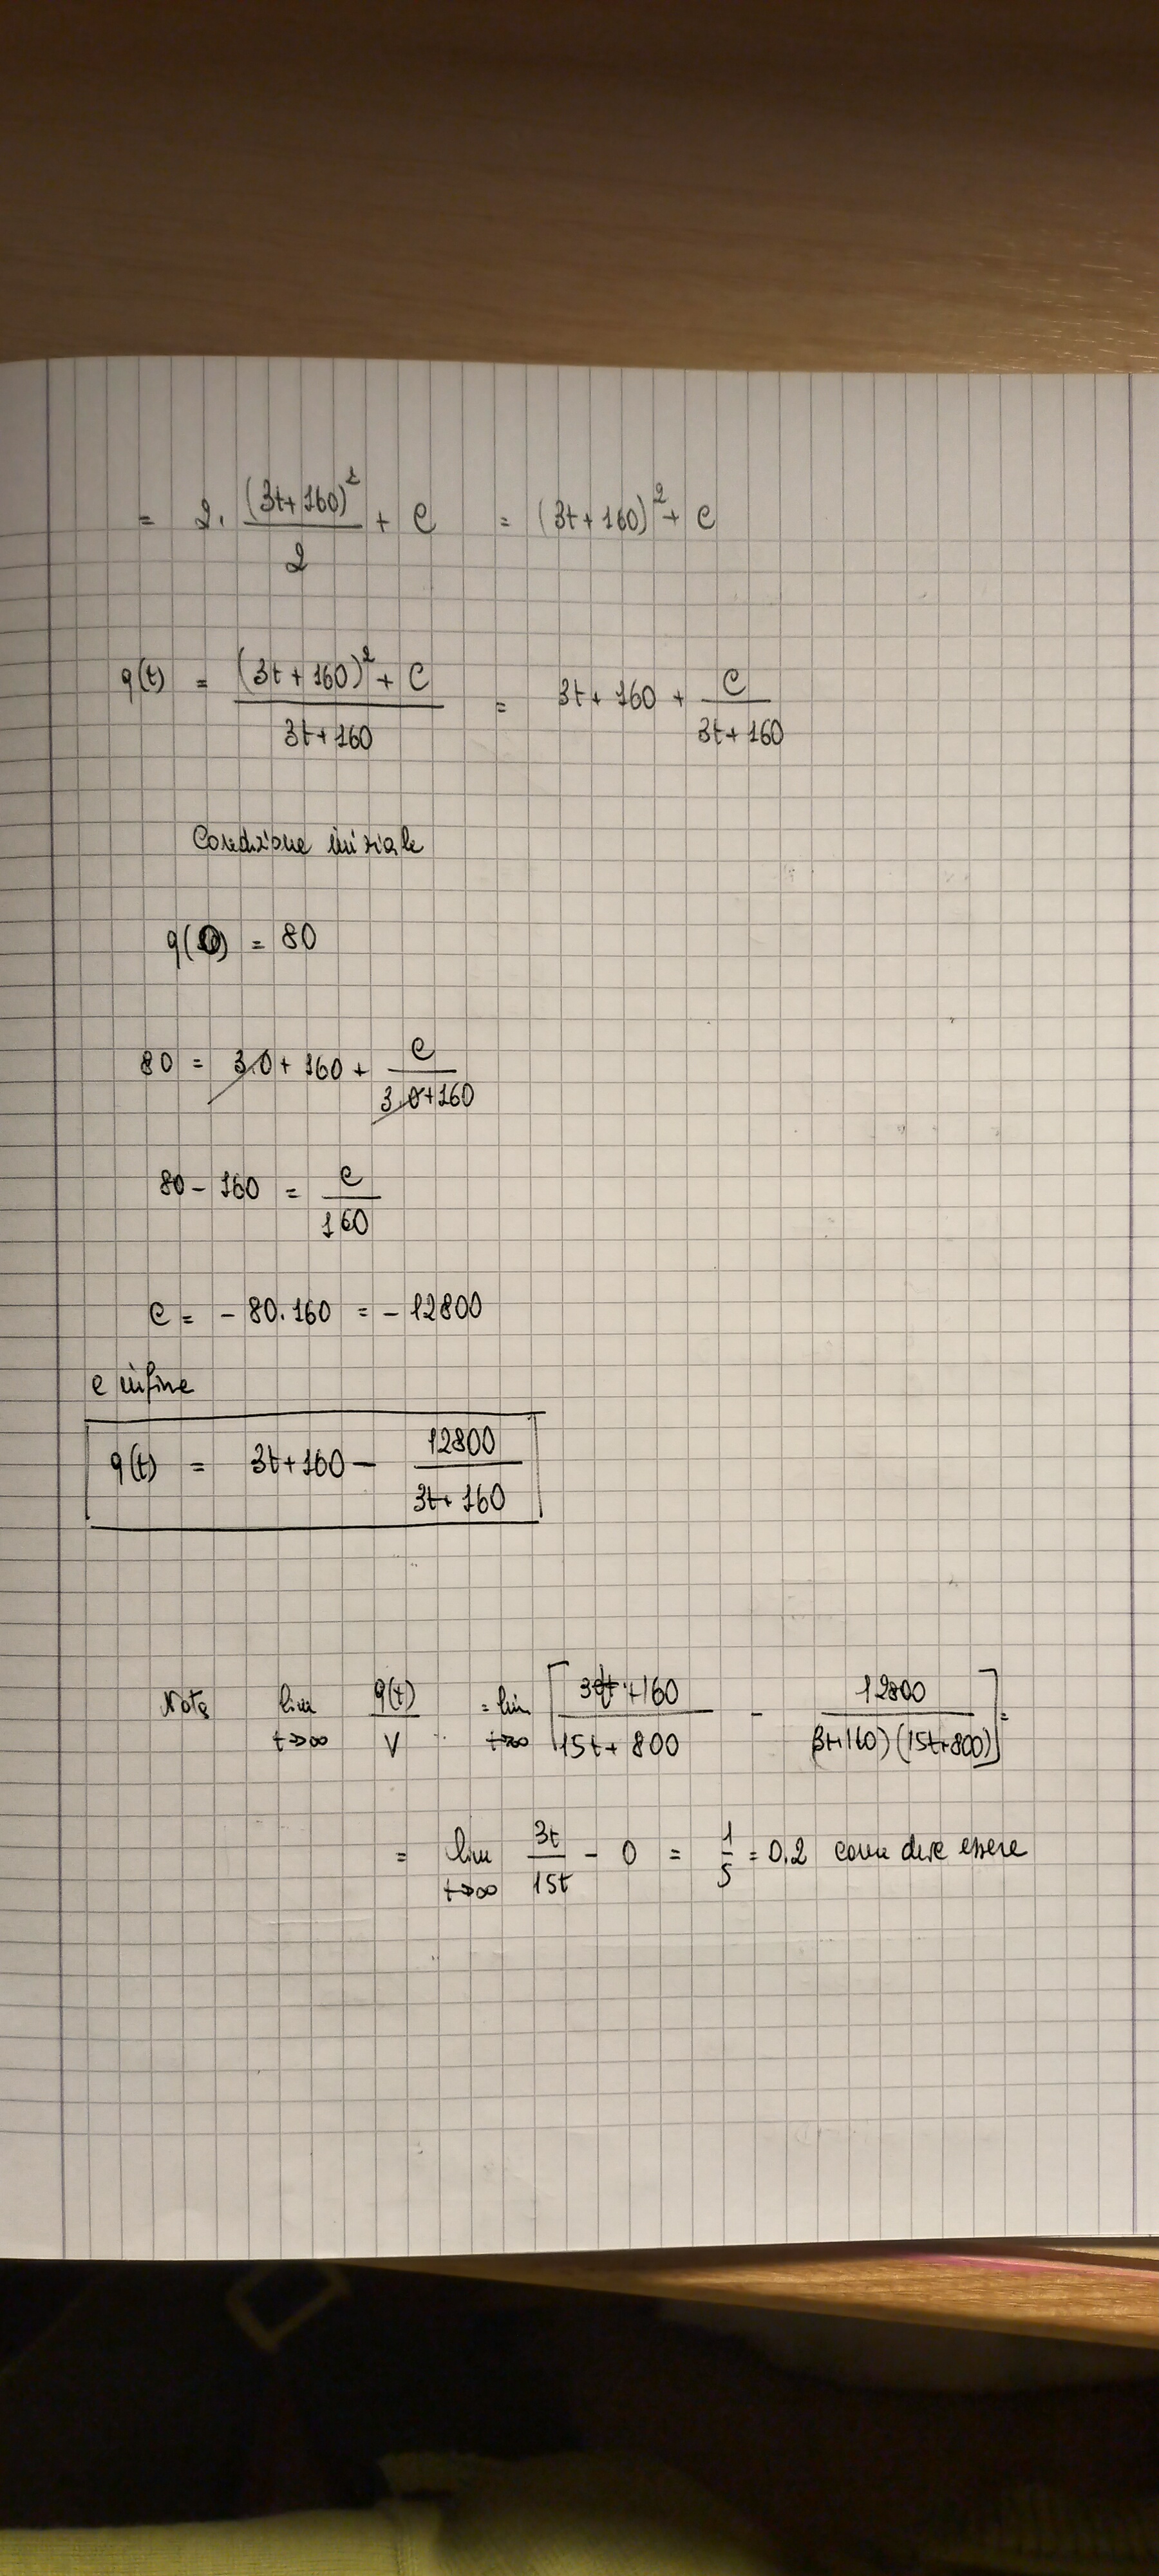 = 2 · (3t+160)² / 2 + C = (3t+160)² + C
q(t) = ((3t+160)² + C) / (3t+160) = 3t+160 + C / (3t+160)
Condizione iniziale
q(0) = 80
80 = 3·0 + 160 + C / (3·0+160)
80 - 160 = C / 160
C = - 80·160 = - 12800
e infine
q(t) = 3t+160 - 12800 / (3t+160)
Nota lim t→∞ q(t) / V = lim t→∞ [ (3t+160) / (15t+800) - 12800 / ((3t+160)(15t+800)) ] =
= lim t→∞ 3t / 15t - 0 = 1/5 = 0.2 come deve essere